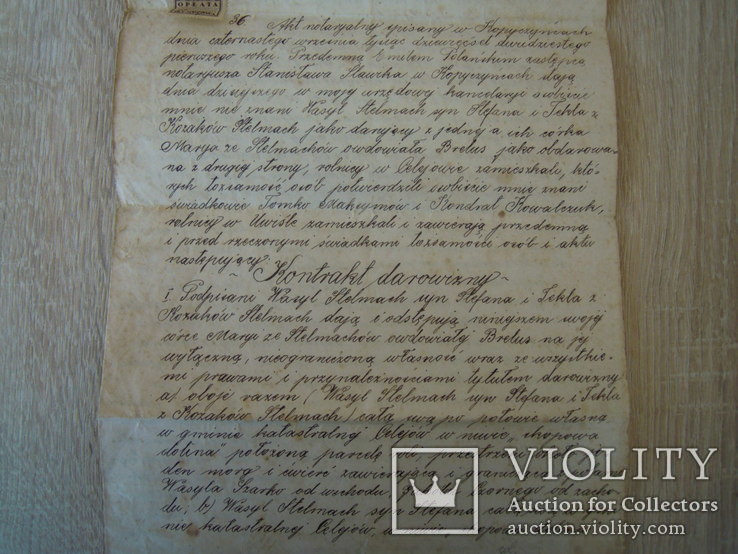 OPŁATA
36. Akt notaryalny spisany w Kopyczyńcach
dnia czternastego września tysiąc dziewięćset dwudziestego
pierwszego roku. Przedemną Emilem zastępcą
notaryusza Stanisława Sławka w Kopyczyńcach dają
dnia dzisiejszego w mojej urzędowej kancelaryi
mnie nie znani Wasyl Stelmach syn Stefana i Tekla z
Kozaków Stelmach jako darujący z jednej a ich córka
Marya ze Stelmachów owdowiała Bretus jako obdarowa-
na z drugiej strony, rolnicy w Celejowie zamieszkali, któ-
rych tożsamość osób potwierdzili osobiście mnie znani
świadkowie Tomko Maksymów i Kondrat Kowalczuk,
rolnicy w Uwiśle zamieszkali i zawierają przedemną
i przed rzeczonymi świadkami tożsamości osób i aktu
następujący:
Kontrakt darowizny
I. Podpisani Wasyl Stelmach syn Stefana i Tekla z
Kozaków Stelmach dają i odstępują niniejszem swojej
córce Maryi ze Stelmachów owdowiałej Bretus na jej
wyłączną, nieograniczoną własność wraz ze wszystkie-
mi prawami i przynależnościami tytułem darowizny
a) oboje razem (Wasyl Stelmach syn Stefana i Tekla
z Kozaków Stelmach) całą swą po połowie własną
w gminie katastralnej Celejów w niwie "chopowa
dolina" położoną parcelę
den morg i ćwierć zawierającą i
Wasyla Szarko od wschodu, Czornego od zacho-
du; b) Wasyl Stelmach syn Stefana
nie katastralnej Celejów,
VIOLITY
Auction for Collectors
auction.violity.com